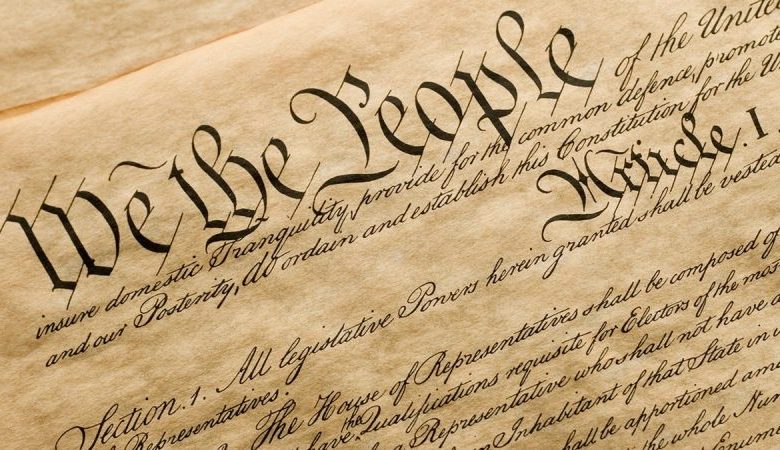 We the People of the United
insure domestic Tranquility, provide for the common defence, promote
and our Posterity, do ordain and establish this Constitution for the
Article. I
Section. 1. All legislative Powers herein granted shall be vested
Representatives.
The House of Representatives shall be composed of
have the Qualifications requisite for Electors of the most
a Representative who shall not have
Inhabitant of that State in
shall be apportioned
the whole Num